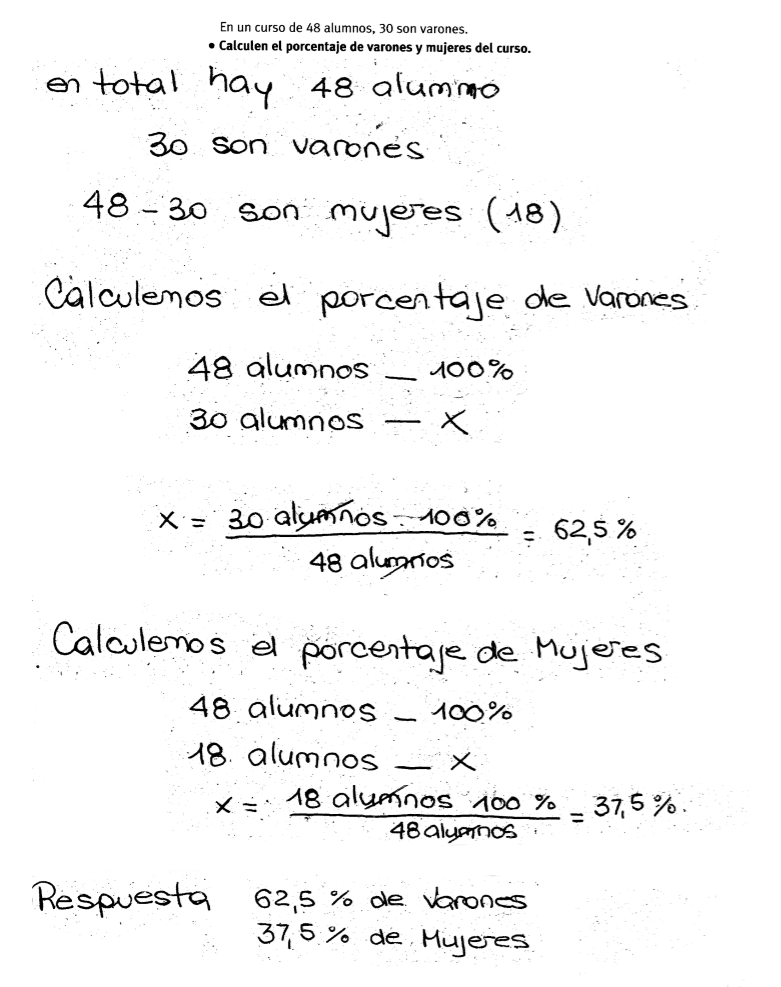 En un curso de 48 alumnos, 30 son varones.
• Calculen el porcentaje de varones y mujeres del curso.
en total hay 48 alumno
30 son varones
48 - 30 son mujeres (18)
Calculemos el porcentaje de Varones
48 alumnos — 100%
30 alumnos — X
x = 30 alumnos · 100% / 48 alumnos = 62,5 %
Calculemos el porcentaje de Mujeres
48 alumnos — 100%
18 alumnos — X
x = 18 alumnos 100 % / 48 alumnos = 37,5 %.
Respuesta 62,5 % de varones
37,5 % de Mujeres